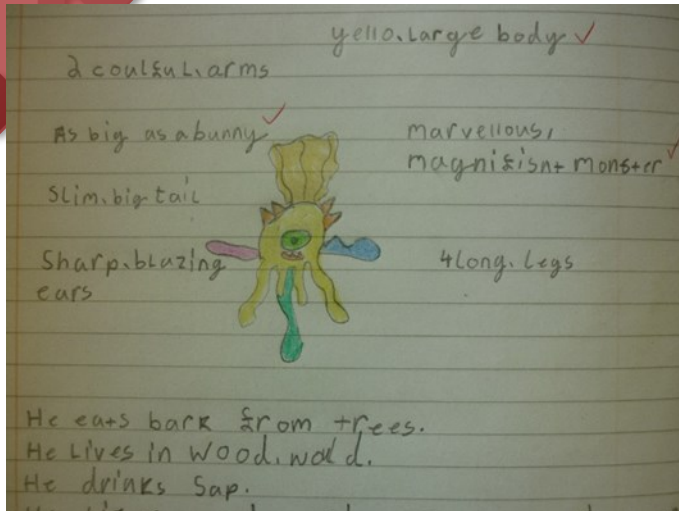 yello. large body
2 coulful. arms
As big as a bunny
marvellous,
magnifisnt monster
Slim. big tail
Sharp. blazing
ears
4 long. legs
He eats bark from trees.
He lives in wood. world.
He drinks Sap.